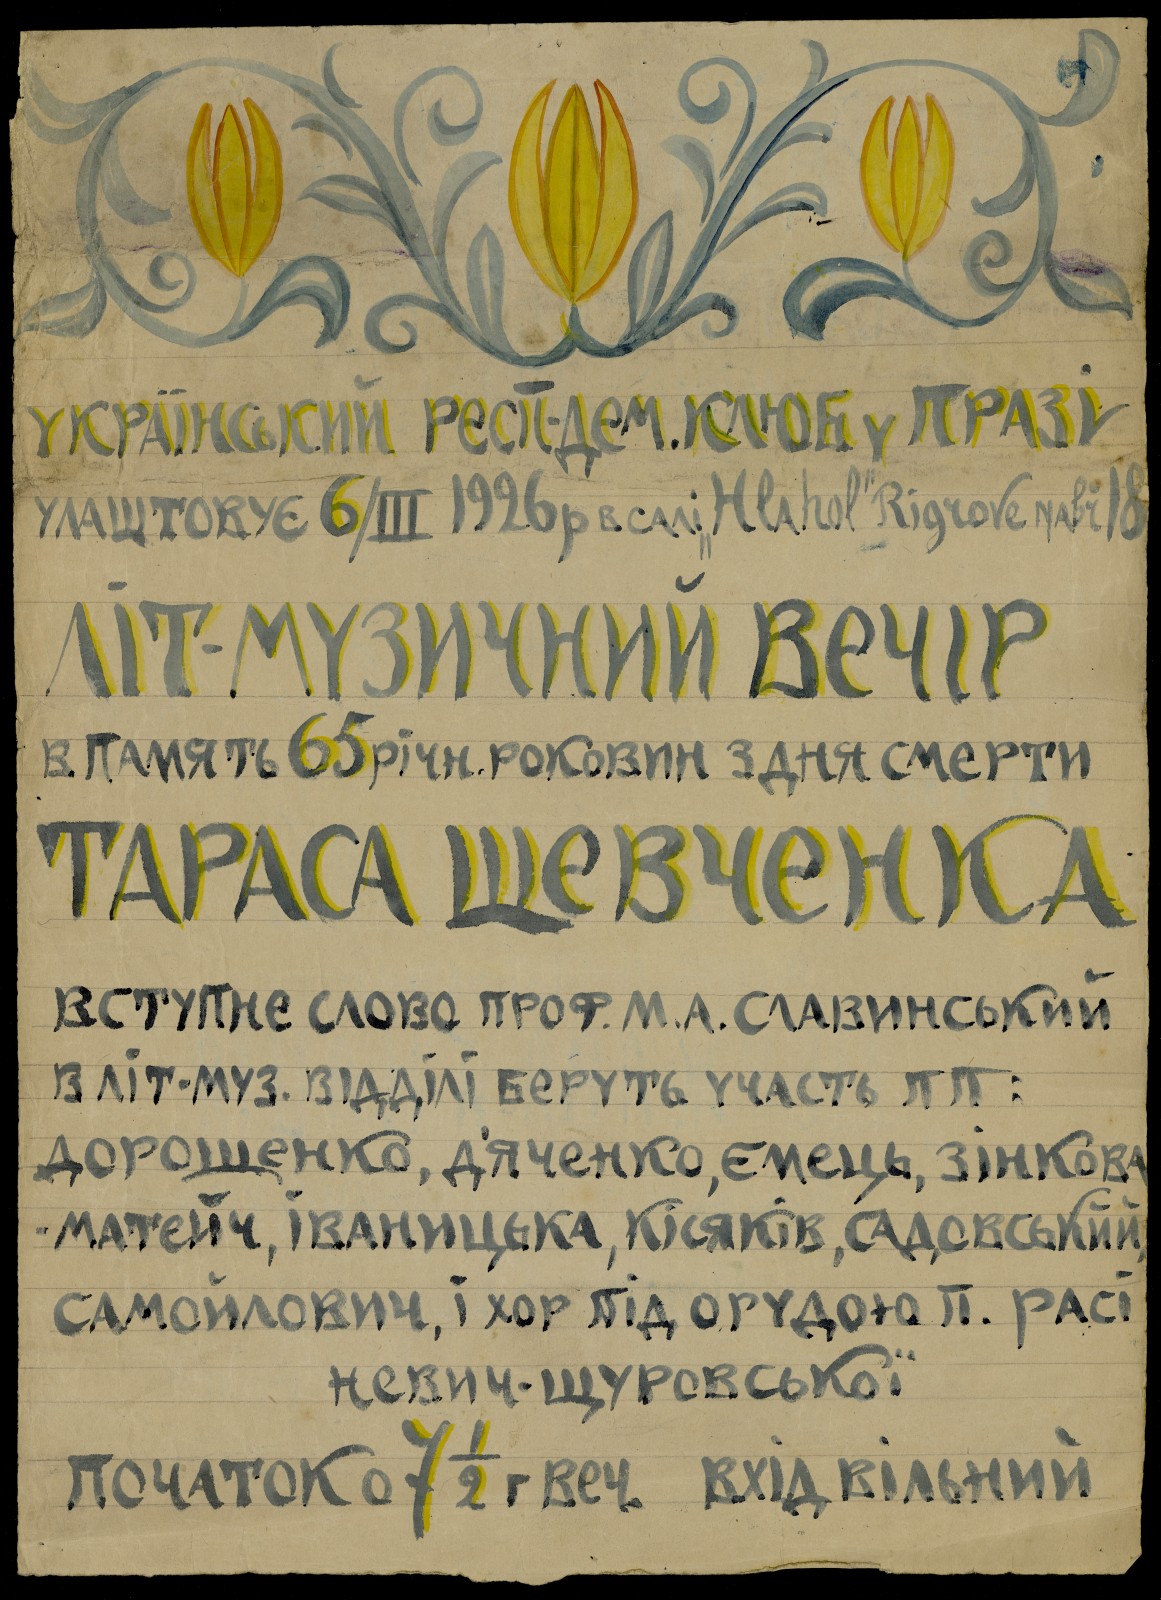 УКРАЇНСЬКИЙ РЕСП-ДЕМ. КЛЮБ У ПРАЗІ
УЛАШТОВУЄ 6/III 1926 р в салі „Hlahol" Rigrove nabř 18
ЛІТ-МУЗИЧНИЙ ВЕЧІР
В ПАМЯТЬ 65 річн. РОКОВИН З ДНЯ СМЕРТИ
ТАРАСА ШЕВЧЕНКА
ВСТУПНЕ СЛОВО ПРОФ. М.А. СЛАВИНСЬКИЙ
В ЛІТ-МУЗ. ВІДДІЛІ БЕРУТЬ УЧАСТЬ ПП:
ДОРОШЕНКО, Д'ЯЧЕНКО, ЄМЕЦЬ, ЗІНКОВА
-МАТЕЙЧ, ІВАНИЦЬКА, КІСЯКІВ, САДОВСЬКИЙ,
САМОЙЛОВИЧ, І ХОР ПІД ОРУДОЮ П. РАСІ
НЕВИЧ-ЩУРОВСЬКОЇ
ПОЧАТОК О 7 1/2 Г ВЕЧ. ВХІД ВІЛЬНИЙ